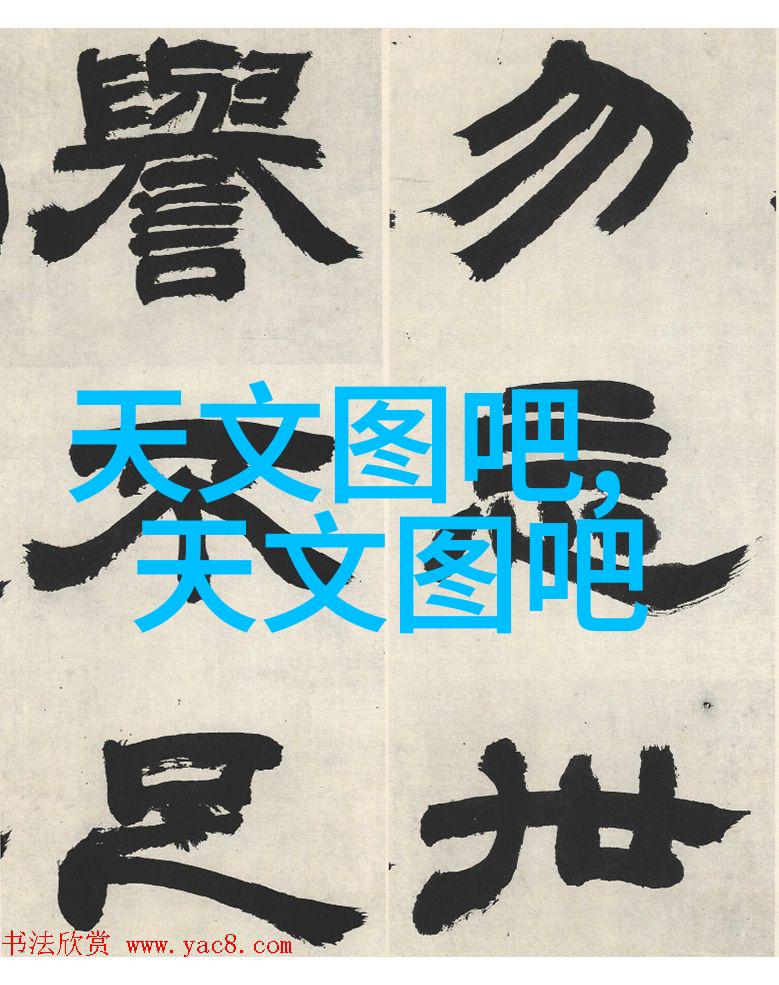 勿忘世
譽不足
天文图吧,
天文图吧
书法欣赏 www.yac8.com